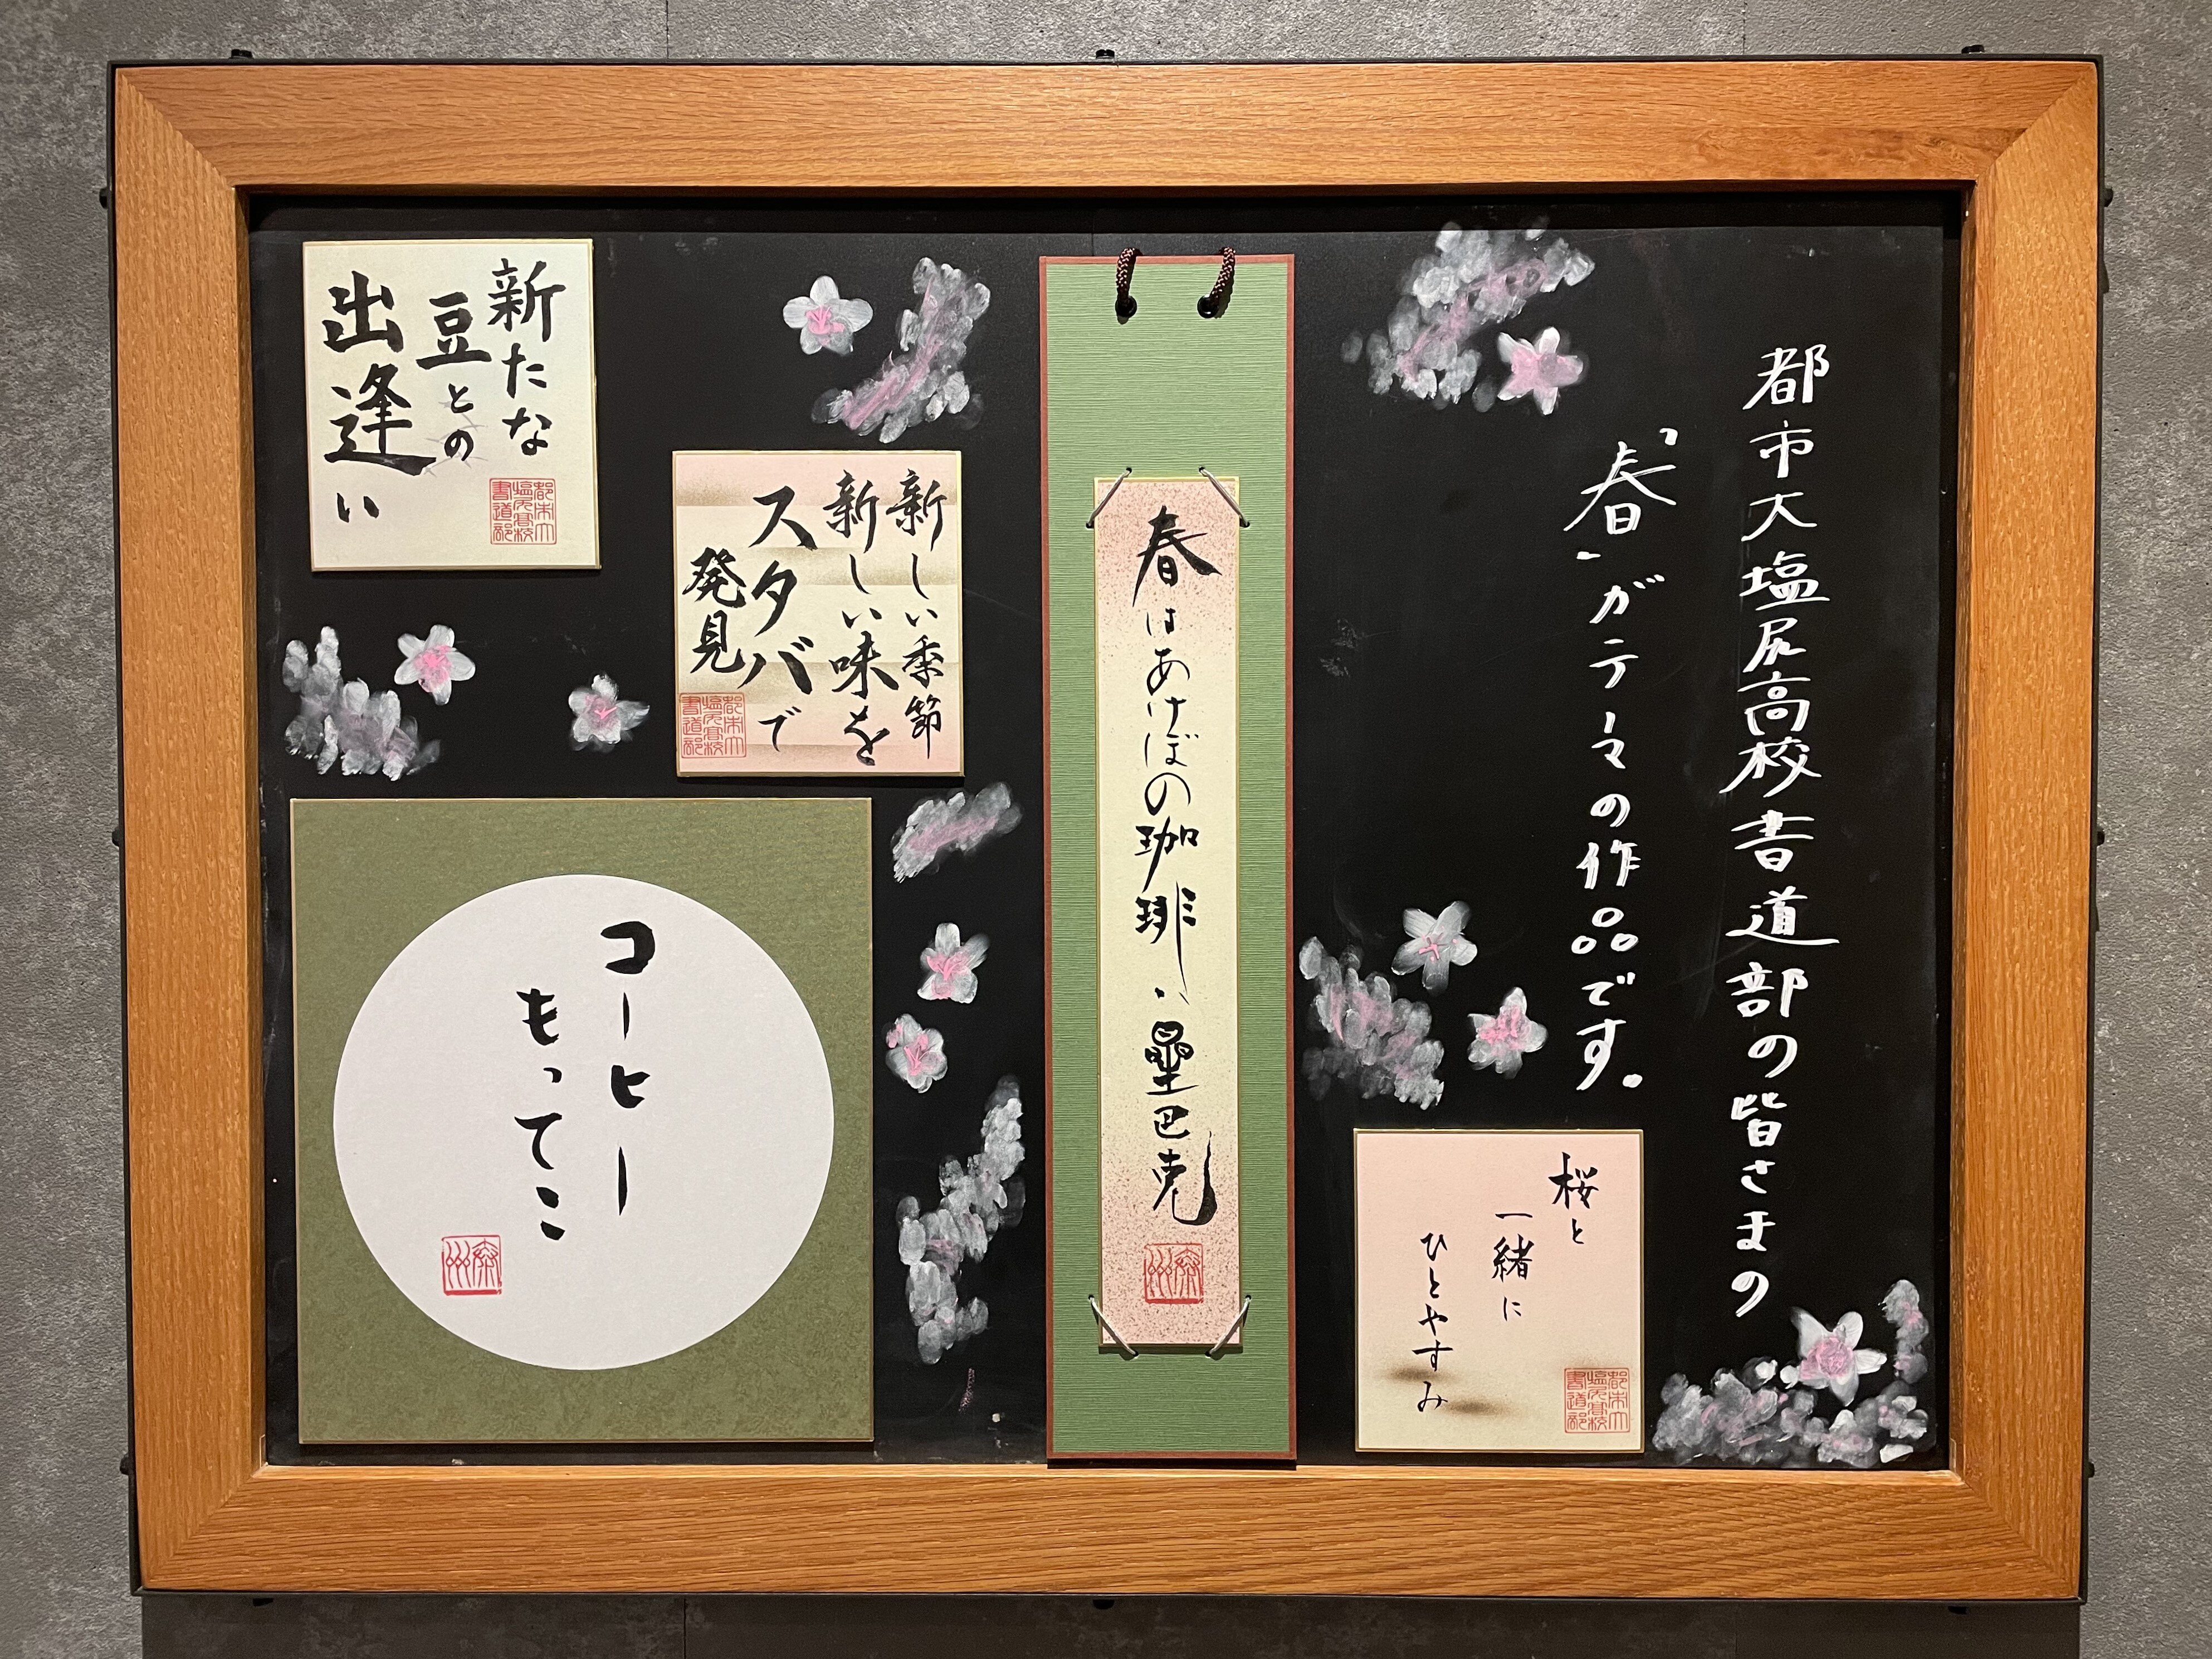 都市大塩尻高校書道部の皆さまの
「春」がテーマの作品です。
桜と
一緒に
ひとやすみ
都市大
塩尻高校
書道部
春はあけぼの珈琲ハ曐巴克
新しい季節
新しい味を
スタバで
発見
都市大
塩尻高校
書道部
新たな
豆との
出逢い
都市大
塩尻高校
書道部
コーヒー
もってこ